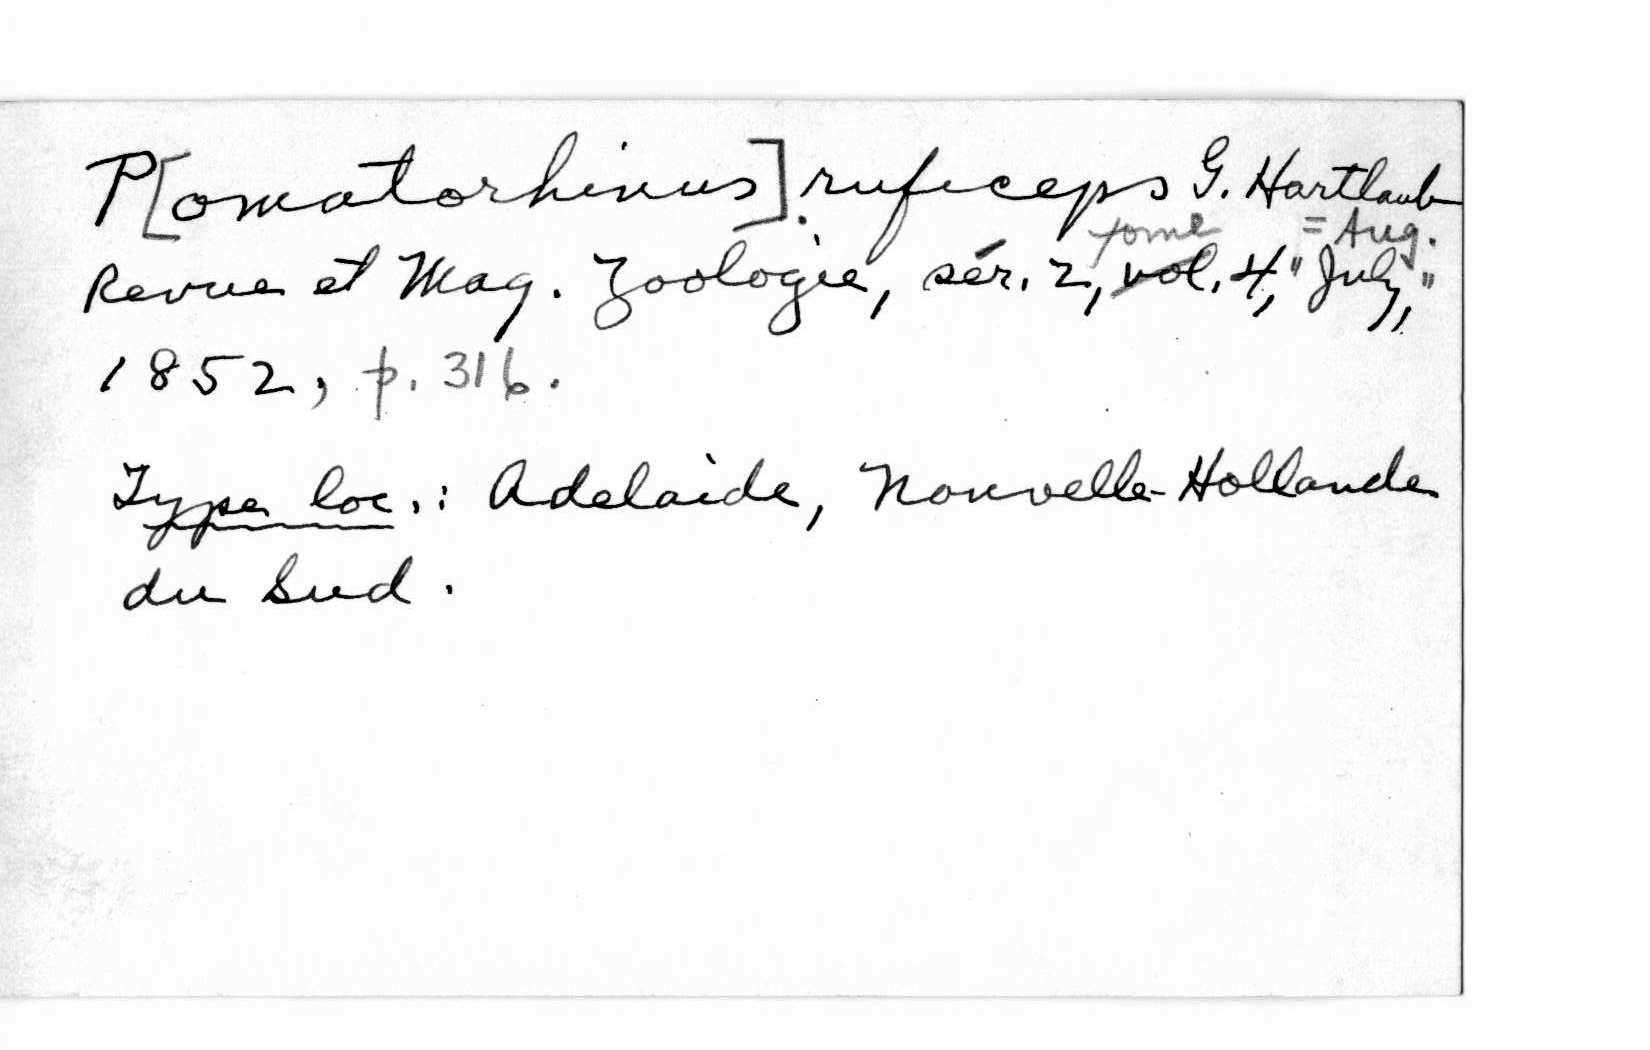 P[omatorhinus]. ruficeps G. Hartlaub
tome = Aug.
Revue et Mag. Zoologie, sér. 2, vol. 4, "July,"
1852, p. 316.
Type loc.: Adelaide, Nouvelle-Hollande
du Sud.